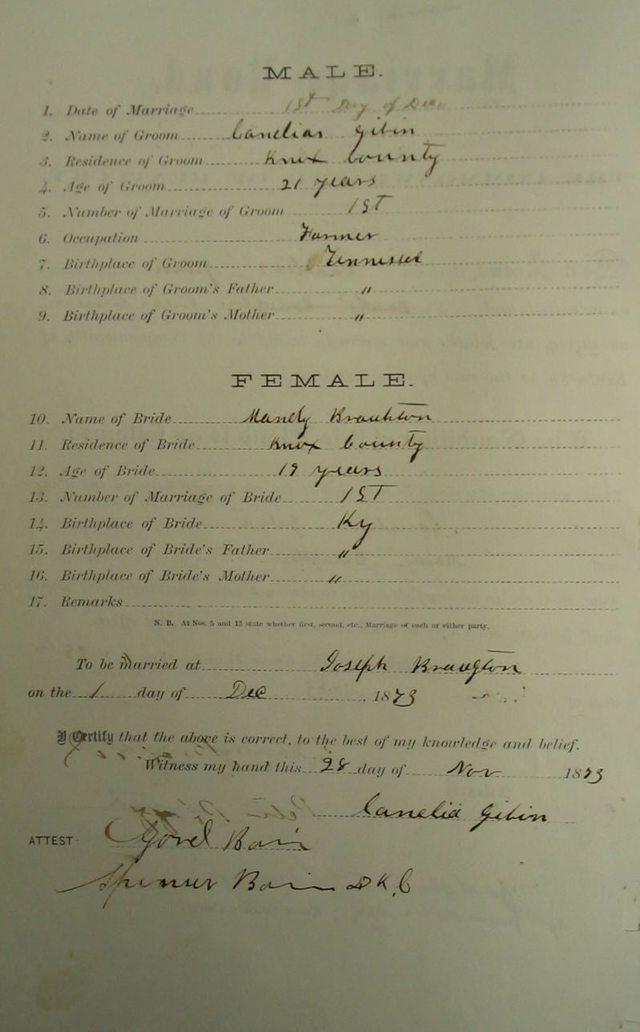 MALE.
1. Date of Marriage 1st Day of Dec
2. Name of Groom Canelias Gibin
3. Residence of Groom Knox County
4. Age of Groom 21 years
5. Number of Marriage of Groom 1ST
6. Occupation Farmer
7. Birthplace of Groom Tennessee
8. Birthplace of Groom's Father "
9. Birthplace of Groom's Mother "
FEMALE.
10. Name of Bride Mandy Braughton
11. Residence of Bride Knox County
12. Age of Bride 19 years
13. Number of Marriage of Bride 1ST
14. Birthplace of Bride Ky
15. Birthplace of Bride's Father "
16. Birthplace of Bride's Mother "
17. Remarks
N. B. At Nos. 5 and 13 state whether first, second, etc., Marriage of each or either party.
To be married at Joseph Braugton
on the 1 day of Dec, 1873
I Certify that the above is correct, to the best of my knowledge and belief.
Witness my hand this 28 day of Nov 1873
Canelia Gibin
ATTEST Bain
Spencer Bain D K. C